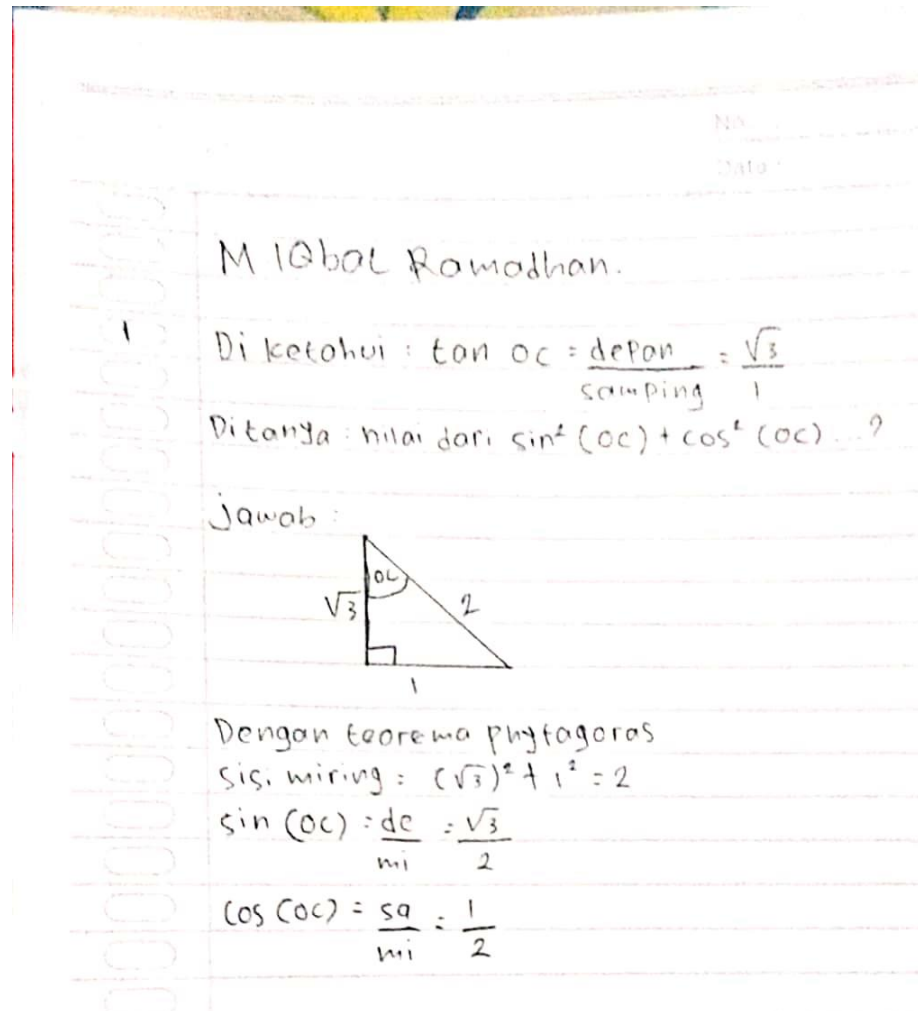 No
Date :
M IQbaL Ramadhan.
1
Di ketahui : tan α = depan = √3
samping 1
Ditanya : nilai dari sin² (α) + cos² (α) ...?
jawab :
α
√3 2
1
Dengan teorema phytagoras
sisi miring = (√3)² + 1² = 2
sin (α) = de = √3
mi 2
cos (α) = sa = 1
mi 2